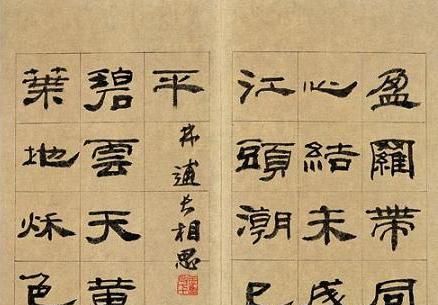 盈羅帶同
心結未成
江頭潮已
平
林逋長相思
碧雲天黃
葉地秋色